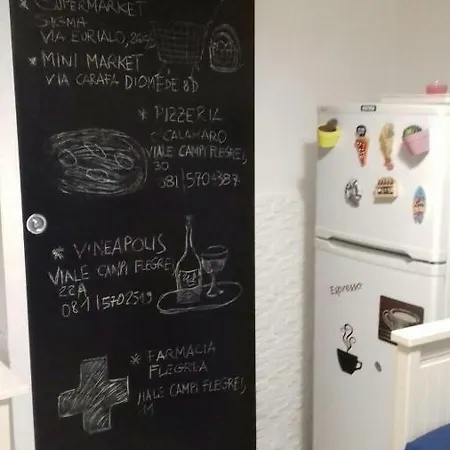 * SUPERMARKET
SIGMA
VIA EURIALO,
* MINI MARKET
VIA CARAFA DIOMEDE 8D
* PIZZERIA
O CALAMARO
VIALE CAMPI FLEGREI,
30
081/5704387
* VINEAPOLIS
VIALE CAMPI FLEGREI
22A
081/5702519
* FARMACIA
FLEGREA
VIALE CAMPI FLEGREI,
11
Espresso